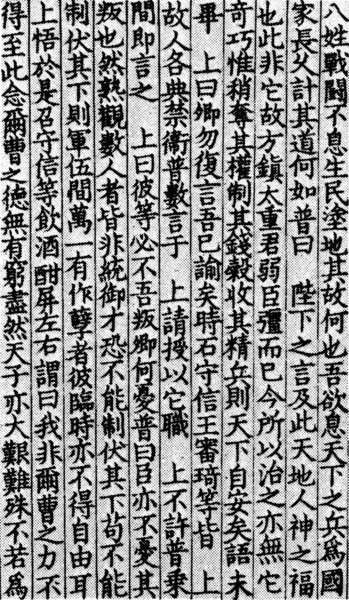 八姓戰鬪不息生民塗地其故何也吾欲息天下之兵爲國
家長久計其道何如普曰　陛下之言及此天地人神之福
也此非它故方鎮太重君弱臣彊而已今所以治之亦無它
奇巧惟稍奪其權制其錢穀收其精兵則天下自安矣語未
畢　上曰卿勿復言吾已諭矣時石守信王審琦等皆　上
故人各典禁衛普數言于　上請授以它職　上不許普乗
間即言之　上曰彼等必不吾叛卿何憂普曰臣亦不憂其
叛也然熟觀數人者皆非統御才恐不能制伏其下苟不能
制伏其下則軍伍間萬一有作孽者彼臨時亦不得自由耳
上悟於是召守信等飲酒酣屏左右謂曰我非爾曹之力不
得至此念爾曹之德無有窮盡然天子亦大艱難殊不若爲